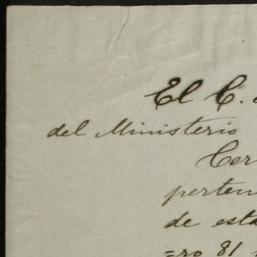 El C.
del Ministerio
Cer
perten
de esta
=ro 81